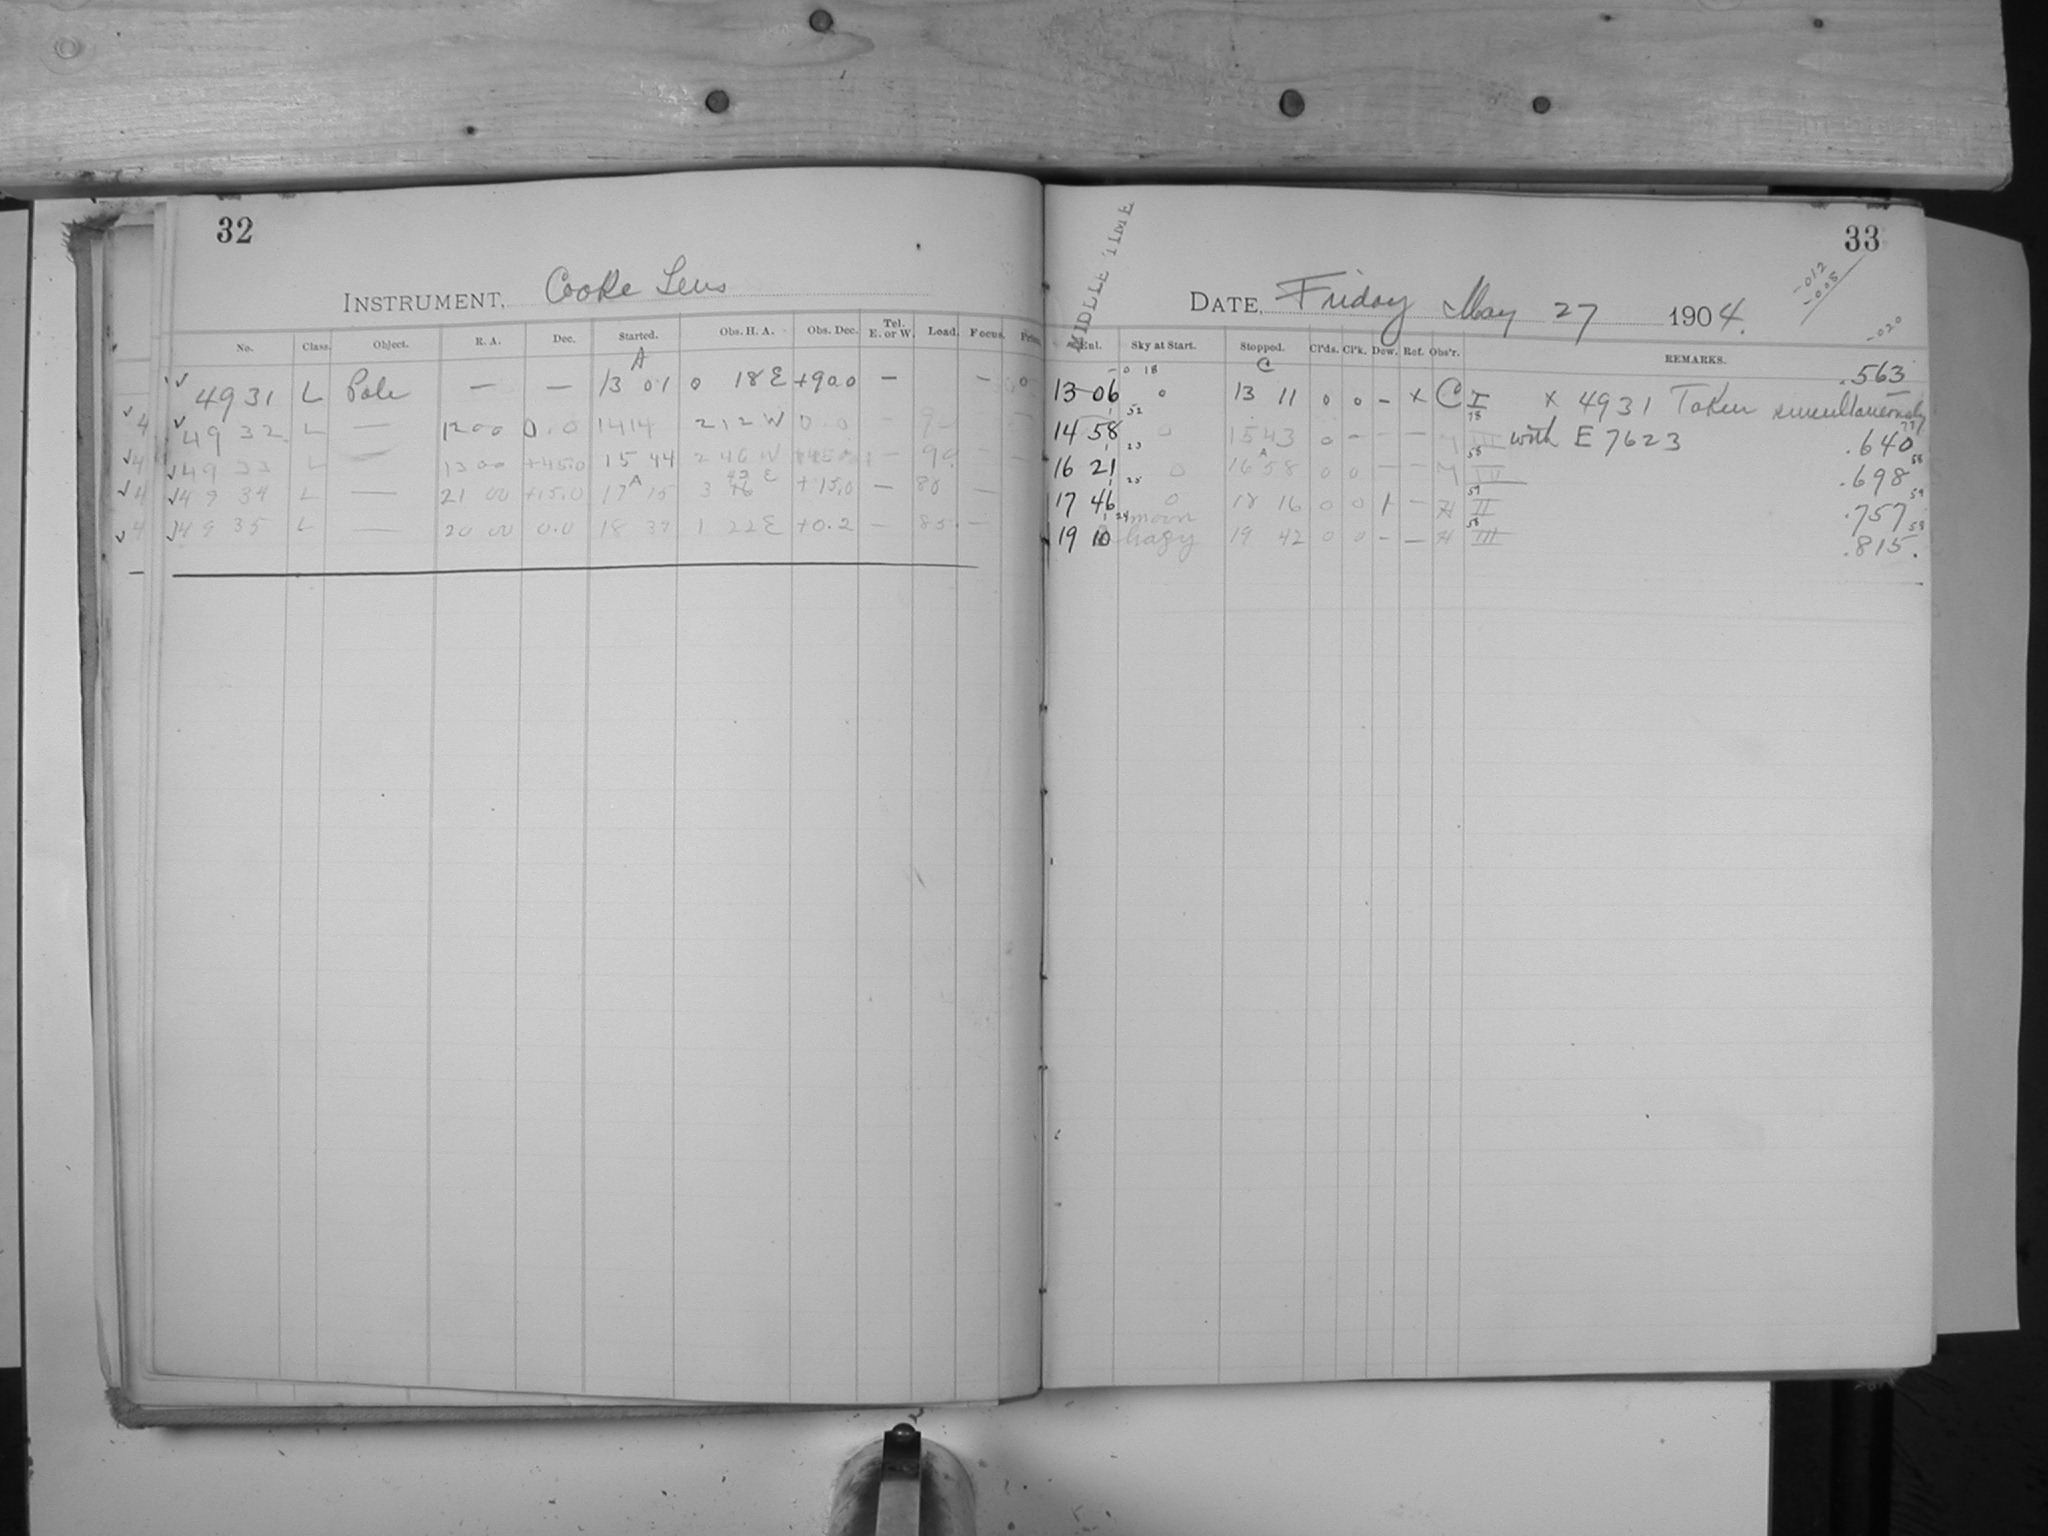 32
INSTRUMENT, Cooke Lens
No. Class. Object. R. A. Dec. Started. Obs. H. A. Obs. Dec. Tel. E. or W. Load. Focus.
A
4931 L Pole — — 13 01 0 18 E +90.0 — —
4932 L — 12 00 0.0 14 14 2 12 W 0.0 —
4933 L — 13 00 +45.0 15 44 2 46 W +45.0 — 90 —
A
4934 L — 21 00 +15.0 17 15 3 E +15.0 — 80 —
4935 L — 20 00 0.0 18 37 1 22 E +0.2 — 85 —
33
MIDLLE TIME
-.012
-.008
-.020
DATE, Friday May 27 1904.
Enl. Sky at Start. Stopped. Cl'ds. Cl'k. Dew. Ref. Obs'r. REMARKS.
0 18 C
13 06 0 13 11 0 0 - x C I x 4931 Taken simultaneously .563
52 78 77
14 58 0 15 43 0 — — — III with E 7623 .640
23 A 58 58
16 21 0 16 58 0 0 — — .698
25 59 59
17 46 0 18 16 0 0 1 — H II .757
24 58 58
19 10 moon hazy 19 42 0 0 - — H III .815.